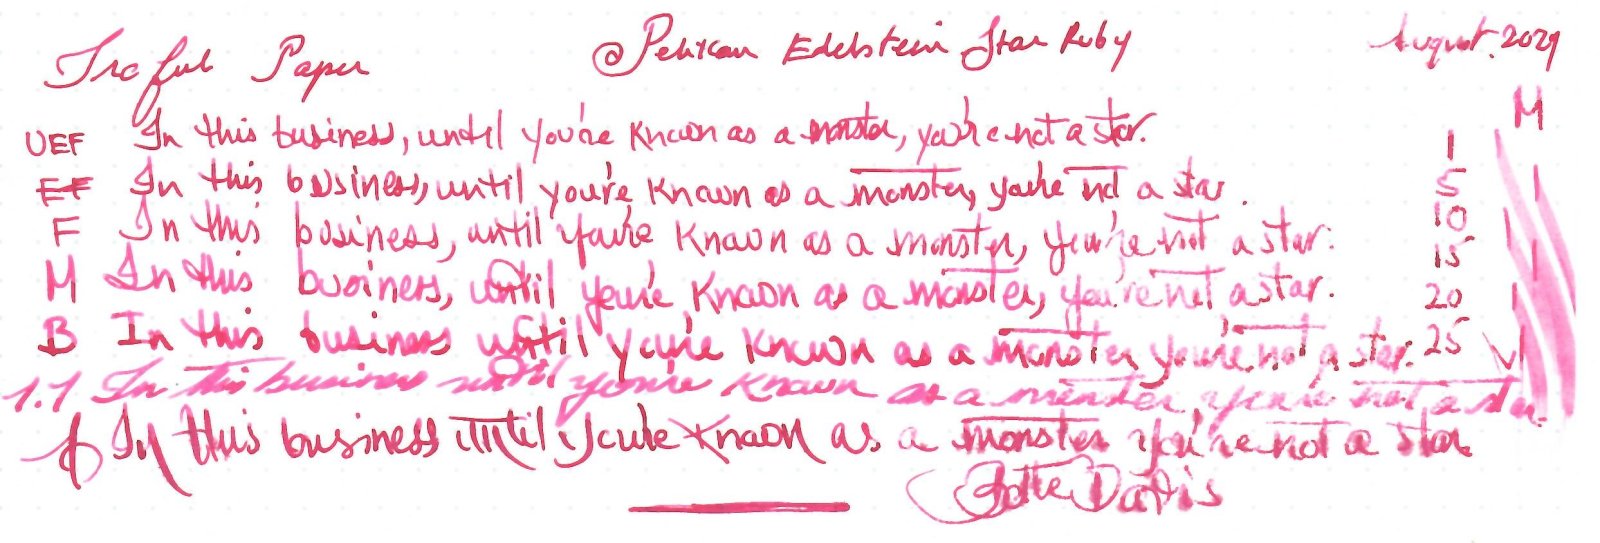 Paper @ Pelikan Edelstein Star Ruby August. 2021
M
UEF In this business, until you're Known as a monster, you're not a star. 1
EF In this business, until you're Known as a monster, you're not a star. 5
F In this business, until you're Known as a monster, you're not a star. 10
15
M In this business, until you're Known as a monster, you're not a star. 20
B In this business until you're Known as a monster you're not a star. 25
1.1 In this business until you're Known as a monster, you're not a star.
In this business until you're Known as a monster you're not a star
Bette Davis